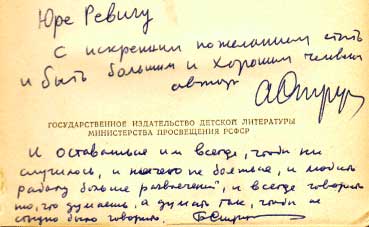 Юре Ревичу
С искренним пожеланием стать
и быть большим и хорошим человеком
автор АСтруг
ГОСУДАРСТВЕННОЕ ИЗДАТЕЛЬСТВО ДЕТСКОЙ ЛИТЕРАТУРЫ
МИНИСТЕРСТВА ПРОСВЕЩЕНИЯ РСФСР
И оставаться им всегда, чтобы ни
случилось, и ничего не бояться, и любить
работу больше развлечений, и всегда говорить
то, что думаешь, а думать так, чтобы не
стыдно было говорить. БСтруг